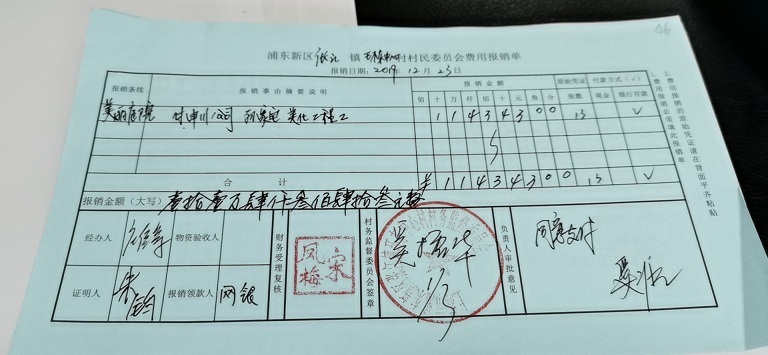 浦东新区张江镇村村民委员会费用报销单
报销日期：2019年12月23日
报销条线 报销事由摘要说明 报销金额 原始凭证 付款方式（√）
佰 十 万 仟 佰 十 元 角 分 张数 现金 银行存款
美丽庭院 付申川公司 美化工程 1 1 4 3 4 3 0 0 13 √
合计 ¥ 1 1 4 3 4 3 0 0 13 √
报销金额（大写） 壹拾壹万肆仟叁佰肆拾叁元整
经办人 物资验收人 财务受理复核 凤梅 宗 村务监督委员会签章 1/3 负责人审批意见 同意支付
证明人 报销领款人 网银
1、费用报销必须填此报销单
2、费用报销的原始凭证请在背面平齐粘贴